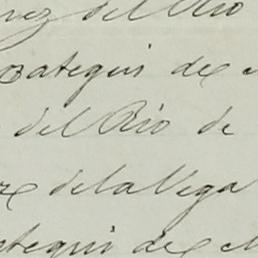 rez del Rio
zategui de
del Rio de
de la Vega
ategui de